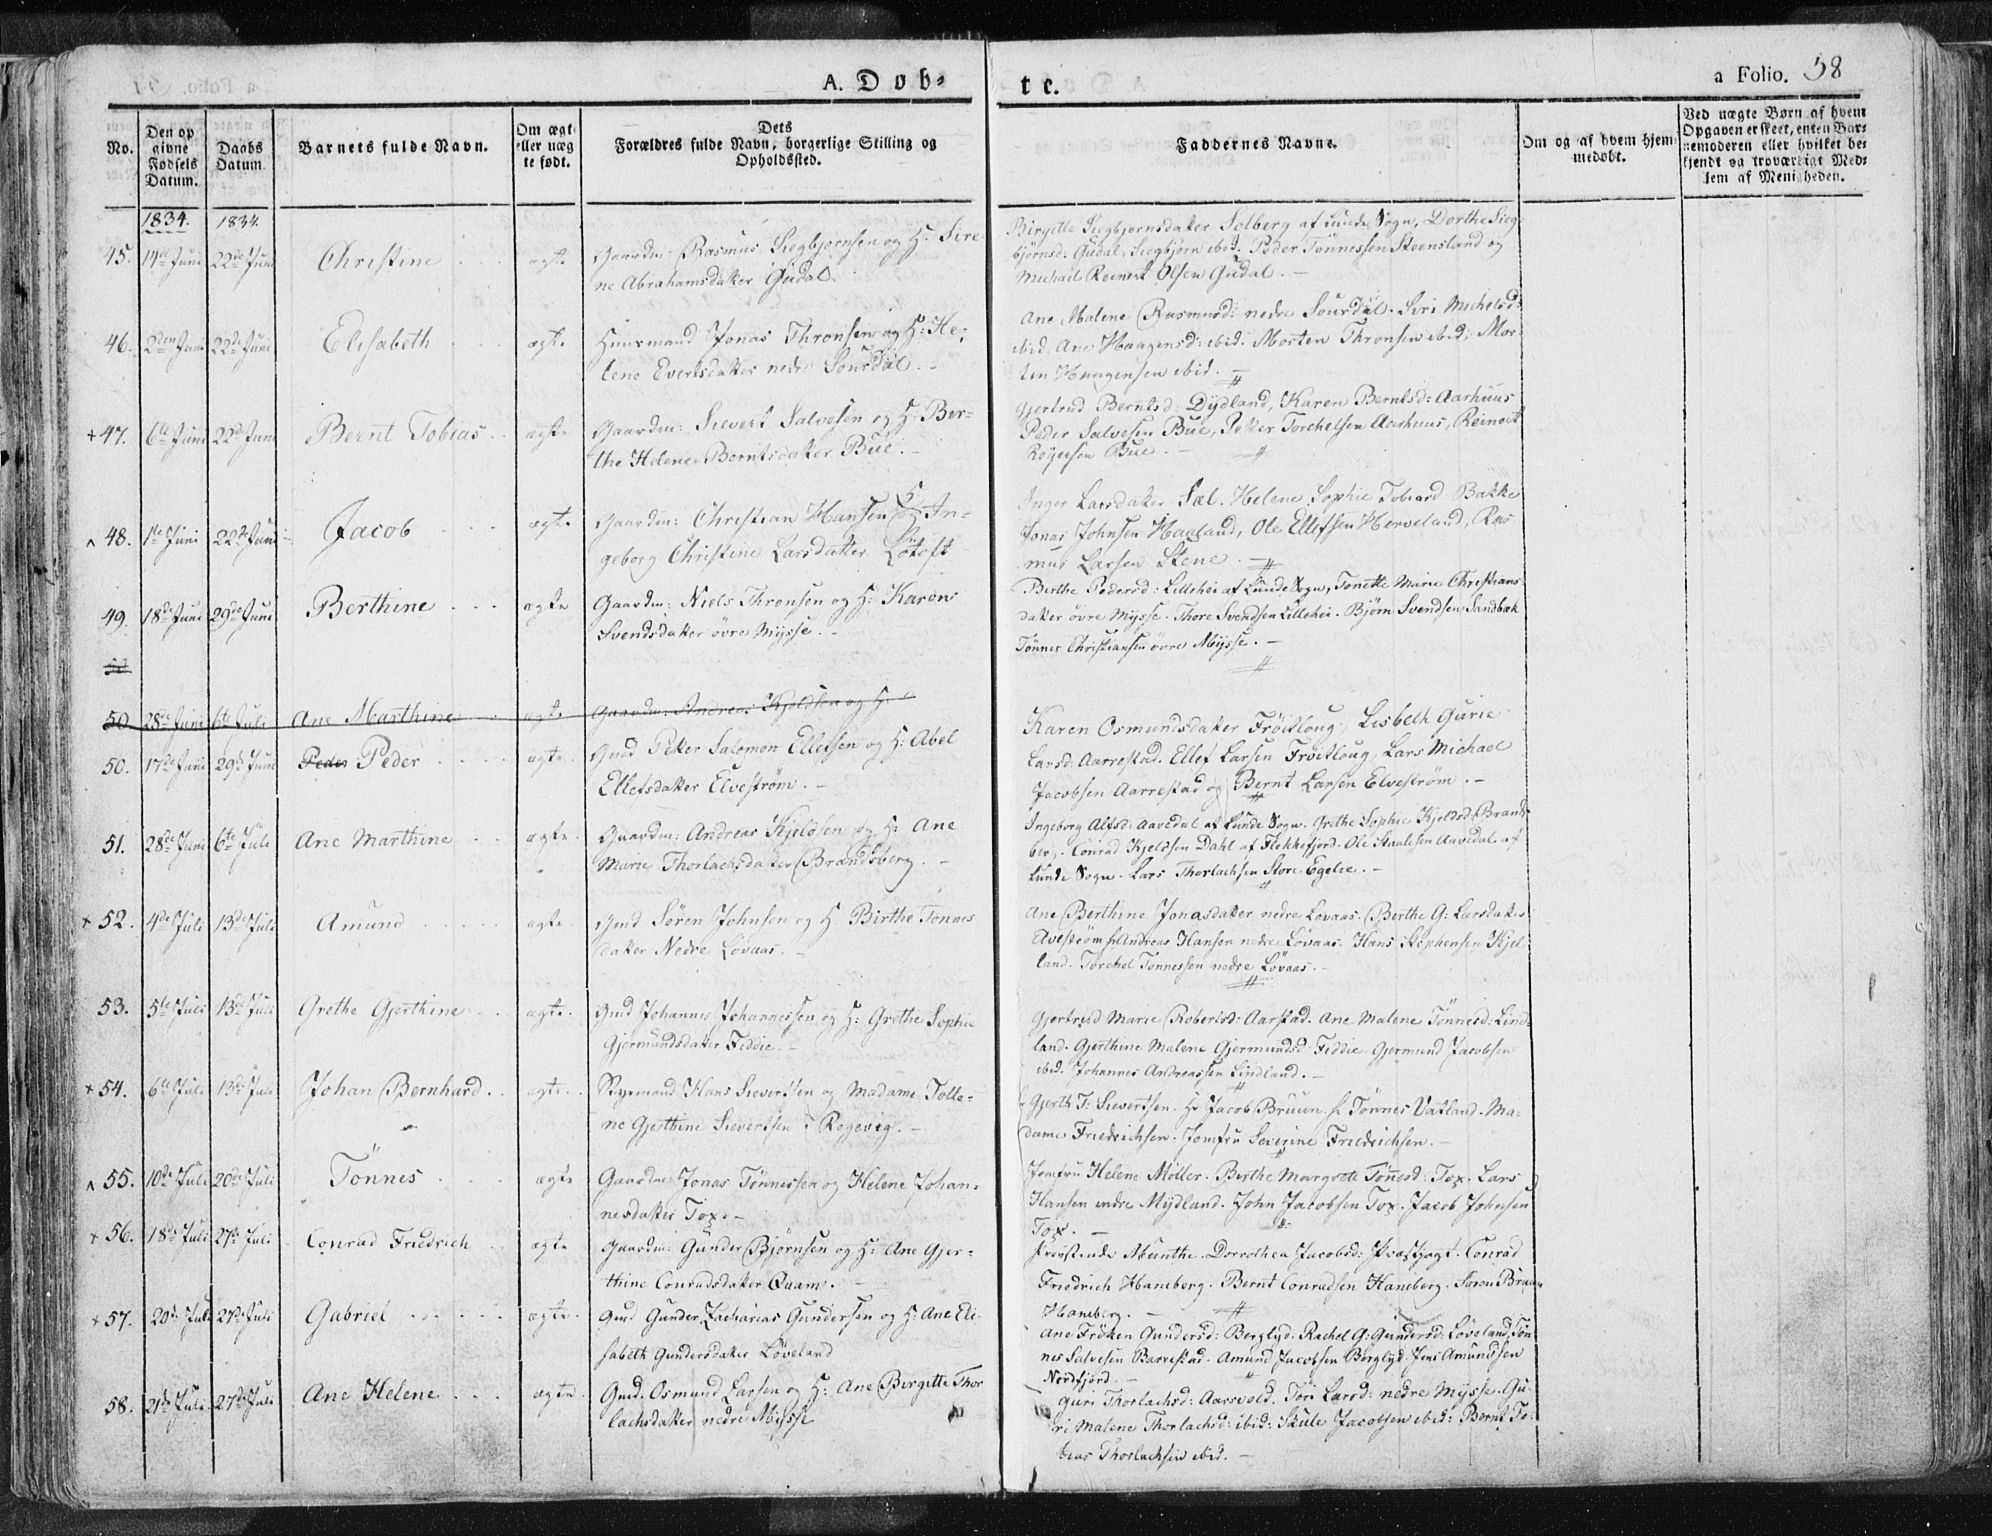 A. Døb=
te.
a Folio. 58
No.
Den op
givne
Fødsels
Datum.
Daabs
Datum.
Barnets fulde Navn.
Om ægt
eller uæg
te født.
Dets
Forældres fulde Navn, borgerlige Stilling og
Opholdssted.
Faddernes Navne.
Om og af hvem hjem-
medøbt.
Ved uægte Børn af hvem
Opgaven er skeet, enten Bar-
nemoderen eller hvilket be-
kjendt og troværdigt Med-
lem af Menigheden.
1834. 1834.
45. 14de Juni 22de Juni Christine ægte Gaardm: Rasmus Siegbjørnsen og H: Sire-
ne Abrahamsdatter Gudal.
Birgitte Siegbjørnsdatter Solberg af Lunde Sogn, Dorthe Sieg-
bjørnsd: Gudal, Siegbjørn ibid. Peder Tønnessen Steensland og
Michail Reinert Olsen Gudal.
46. 2den Juni 22de Juni Elisabeth ægte Huusmand Jonas Thronsen og H: He-
lene Evertsdatter nedre Sourdal.
Ane Malene Rasmusd: nedre Sourdal. Siri Michelsd:
ibid. Ane Haagensd: ibid. Morten Thronsen ibid, Mor-
ten Haagensen ibid.
+47. 6te Juni 22de Juni Bernt Tobias ægte Gaardm: Sievert Salvesen og H: Ber-
the Helene Berntsdatter Bue.
Gjertrud Berntsd: Dydland, Karen Berntsd: Aarhuus
Peder Salvesen Bue, Petter Torchelsen Aarhuus, Reinert
Reyersen Bue.
48. 1te Juni 22de Juni Jacob ægte Gaardm: Christian Hansen og H: In-
geborg Christine Larsdatter Løtoft
Inger Larsdatter Sæl. Helene Sophie Tobiasd Bakke
Jonas Johnsen Haaland, Ole Ellefsen Herveland, Ras
mus Larsen Stene
49. 18de Juni 29de Juni Berthine ægte Gaardm: Niels Thronsen og H: Karen
Svendsdatter øvre Mysse.
Birthe Pedersd: Lillehei af Lunde Sogn, Tonette Marie Christians
datter øvre Mysse. Thore Svendsen Lillehei. Bjørn Svendsen Sandbæk
Tønnes Christiansen øvre Mysse.
50 28de Juni 6te Juli Ane Marthine ægte Gaardm: Andreas Kjeldsen og H:
50. 17de Juni 29de Juni Peder Peder ægte Gmd Peter Salomon Ellefsen og H: Abel
Ellefsdatter Elvestrøm.
Karen Osmundsdatter Frøitloug, Lisbeth Gurie
Larsd: Aarrestad. Ellef Larsen Frøitloug, Lars Michael
Jacobsen Aarrestad og Bernt Larsen Elvestrøm.
51. 28de Juni 6te Juli Ane Marthine ægte Gaardm: Andreas Kjeldsen og H: Ane
Marie Thorlachsdatter Brandsberg.
Ingeborg Alfsd: Aavedal af Lunde Sogn. Grethe Sophie Kjeldsd Brands-
ber. Conrad Kjeldsen Dahl af Flekkefjord. Ole Staalesen Aavedal af
Lunde Sogn. Lars Thorlachsen Store Egelie.
+52. 4de Juli 13de Juli Amund ægte Gmd Søren Johnsen og H. Birthe Tønnes
datter Nedre Løvaas.
Ane Berthine Jonasdatter nedre Lovaas. Berthe G: Larsdatter
Elvestrøm. Andreas Hansen nedre Løvaas. Hans Stephensen Kjel-
land. Torchel Tønnessen nedre Løvaas.
53. 5te Juli 13de Juli Grethe Gjerthine ægte Gmd Johannes Johannessen og H: Grethe Sophie
Gjermundsdatter Feddie.
Gjertrud Marie Robertsd: Aarstad. Ane Malene Tønnesd: Lind-
land. Gjerthine Malene Gjermundsd Feddie. Gjermund Jacobsen
ibid. Johannes Andreassen Lindland.
+54. 6te Juli 13de Juli Johan Bernhard ægte Styrmand Hans Sievertsen og Madame Tolle-
ne Gjerthine Sievertsen i Regevig.
Gjerth T: Sievertsen. Hr Jacob Bruun. Tønnes Vatland. Ma-
dame Friedrichsen. Jomfru Severine Friedrichsen.
55. 10de Juli 20de Juli Tönnes ægte Gaardm Jonas Tønnessen og Helene Johan-
nesdatter Tox.
Jomfru Helene Møller. Berthe Margrete Tønnesd: Tox. Lars
Hansen indre Mydland. John Jacobsen Tox. Jacob Johnsen
Tox.
+56. 18de Juli 27de Juli Conrad Friedrich ægte Gaardm: Gunder Bjørnsen og H: Ane Gjer-
thine Conradsdatter Qvam.
Provstinde Munthe. Dorothea Jacobsd: Præstjagt. Conrad
Friedrich Haneberg. Bernt Conradsen Haneberg. Søren Bruun
Haneberg.
+57. 20de Juli 27de Juli Gabriel ægte Gmd Gunder Zacharias Gundersen og H: Ane Eli-
sabeth Gundersdatter Løveland
Ane Frøken Gundersd: Berglyd. Rachel G: Gundersd: Løveland, Tøn-
nes Salvesen Barrestad. Amund Jacobsen Berglyd. Jens Amundsen
Nordfjord.
58. 21de Juli 27de Juli Ane Helene ægte Gmd. Osmund Larsen og H: Ane Birgitte Thor
lachsdatter nedre Mysse
Guri Thorlachsd: Aarsvold. Tøri Larsd: nedre Mysse. Gu-
ri Malene Thorlachsd: ibid: Skule Jacobsen ibid: Bernt To-
bias Thorlachsen ibid.